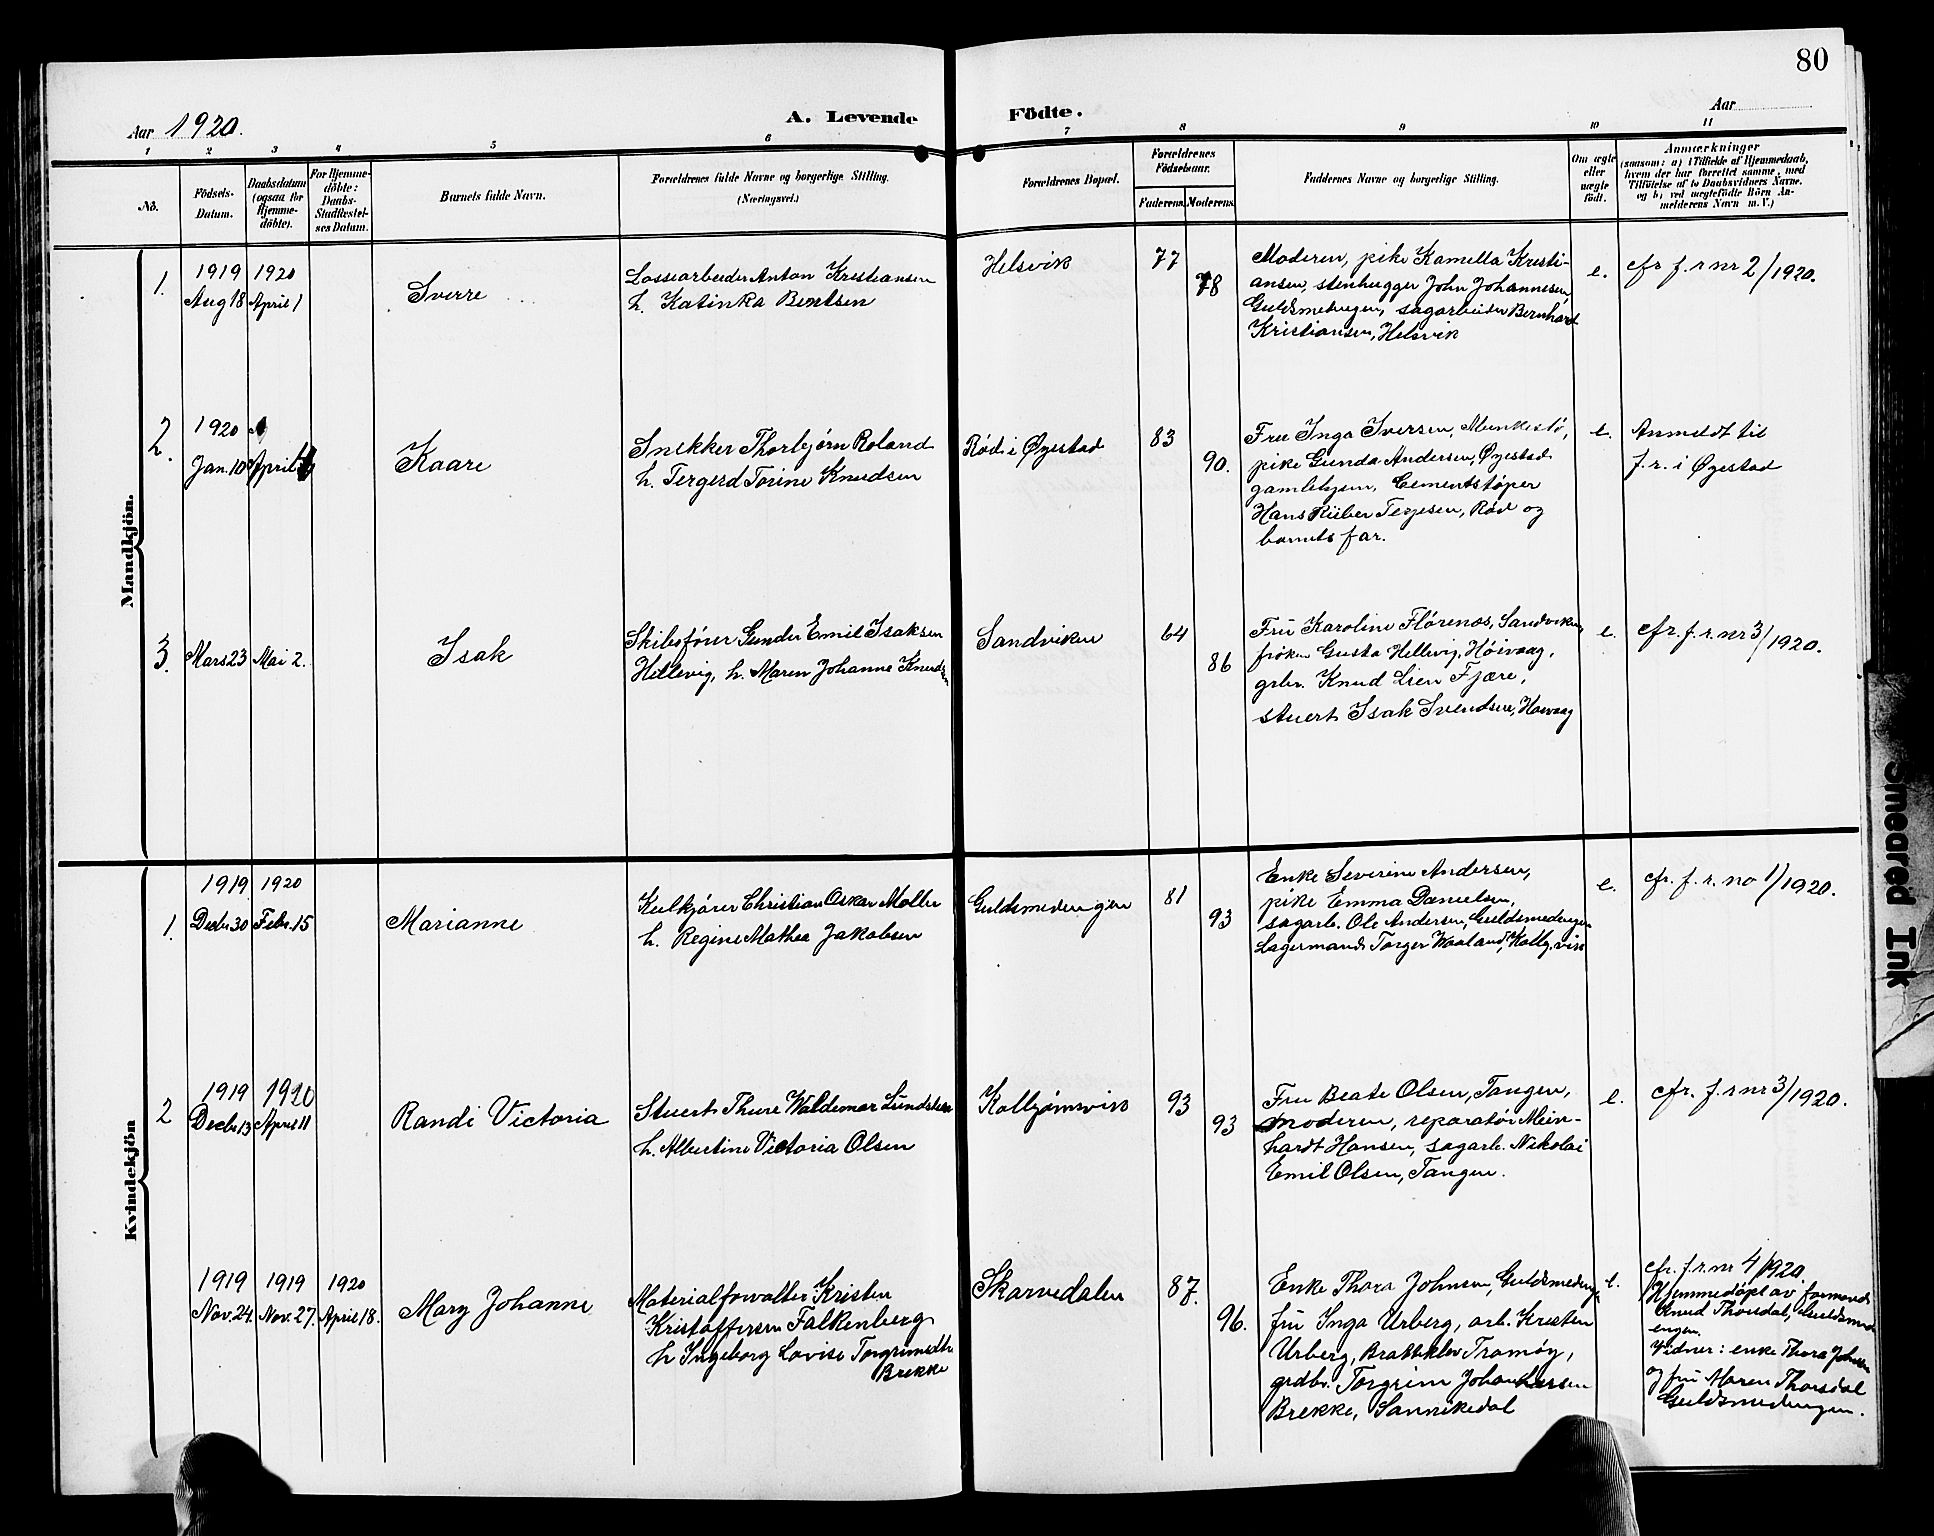 80
Aar 1920.
A. Levende Födte.
Aar
1 2 3 4 5 6 7 8 9 10 11
No.
Födsels-
Datum.
Daabsdatum
(ogsaa for
Hjemme-
döbte).
For Hjemme-
döbte:
Daabs-
Stadfæstel-
ses Datum.
Barnets fulde Navn.
Forældrenes fulde Navne og borgerlige Stilling.
(Næringsvei.)
Forældrenes Bopæl.
Forældrenes
Födselsaar.
Faderens. Moderens.
Faddernes Navne og borgerlige Stilling.
Om ægte
eller
uægte
födt.
Anmærkninger
(saasom: a) i Tilfælde af Hjemmedaab,
hvem der har forrettet samme, med
Tilföielse af to Daabsvidners Navne.
og b) ved uægtefödte Börn An-
melderens Navn m. V.)
Mandkjön.
1.
1919
Aug 18
1920
April 1
Sverre
Lossearbeider Anton Kristiansen
h. Katinka Bentsen
Helsvik
77
78
Moderen, pike Kamella Kristi-
ansen, stenhugger John Johannesen,
Guldsmedengen, sagarbeider Bernhard
Kristiansen, Helsvik
e.
cfr f. r nr 2/1920.
2.
1920
Jan. 10
April
Kaare
Snekker Thorbjørn Roland
h. Tergerd Torine Knudsen
Rød i Øyestad
83
90.
Fru Inga Iversen, Munkestø,
pike Gunda Andersen, Øyestad
gamlehjem, Cementstøper
Hans Riiber Terjesen, Rød og
barnets far.
e.
Anmeldt til
f. r. i Øyestad
3.
Mars 23
Mai 2.
Isak
Skibsfører Gunder Emil Isaksen
Hellevig, h. Maren Johanne Knudsen
Sandviken
64
86
Fru Karoline Flørenæs, Sandviken
frøken Gusta Hellevig, Høivaag,
grbr. Knud Lien Fjære,
stuert Isak Svendsen, Høivaag
e.
cfr. f. r. nr 3/1920.
Kvindekjön
1.
1919
Decbr 30
1920
Febr. 15
Marianne
Kulkjører Christian Oskar Møller
h. Regine Mathea Jakobsen
Guldsmedengen
81
93
Enke Severine Andersen,
pike Emma Danielsen,
sagarb. Ole Andersen, Guldsmedengen
Lagermand Torger Waaland, Kolbj.vik
e.
cfr. f. r. no 1/1920.
2
1919
Decbr. 13
1920
April 11
Randi Victoria
Stuert Thure Waldemar Lundsteen
h. Albertine Victoria Olsen
Kolbjørnsvik
93
93
Fru Beate Olsen, Tangen,
moderen, reparatør Mein-
hardt Hansen, sagarb. Nikolai
Emil Olsen, Tangen.
e.
cfr. f. r nr 3/1920.
1919
Nov. 24.
1919
Nov. 27.
1920
April 18.
Mary Johanne
Materialforvalter Kristen
Kristoffersen Falkenberg
h Ingeborg Lovise Torgrimsdtr
Brekke
Skarvedalen
87.
96.
Enke Thora Johnsen, Guldsmedeng.
fru Inga Urberg, arb. Kristen
Urberg, Brattekleiv Tromøy,
grdbr. Torgrim Johannessen
Brekke, Sannikedal
e.
cfr. f. r. nr 4/1920.
Hjemmedøpt av formand
Knud Thorsdal, Guldsmed
engen.
Vidner: enke Thora Johnsen
og fru Maren Thorsdal
Guldsmedengen.
Smeared Ink